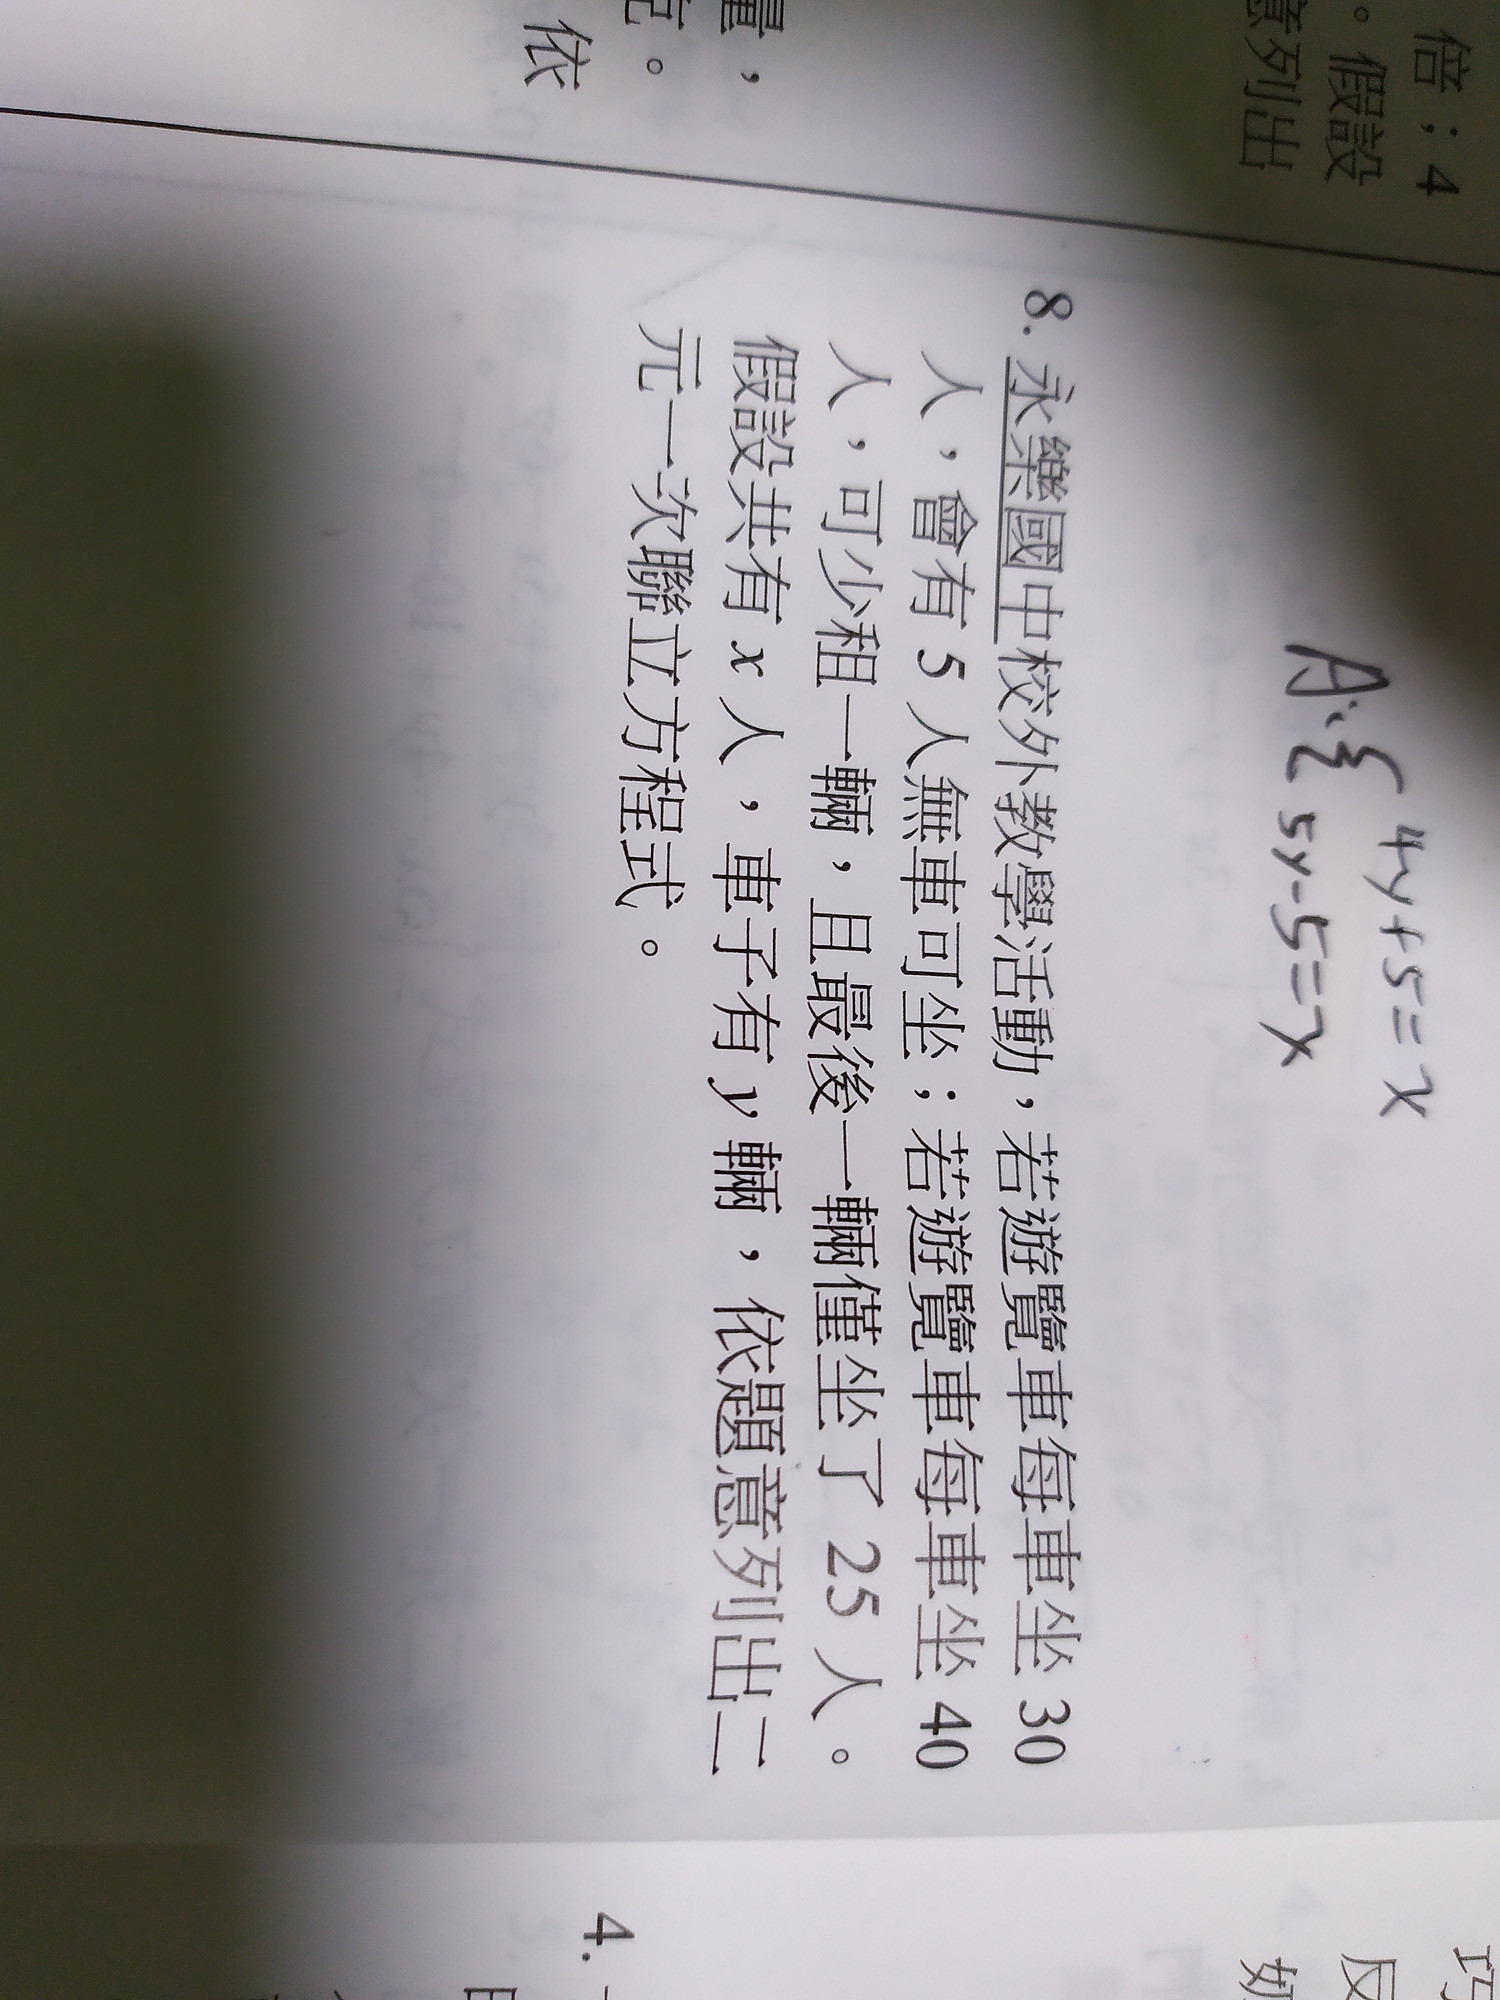 倍；4
。假設
意列出
量，
。
依
A. { 4y+5=x
5y-5=x
8. 永樂國中校外教學活動，若遊覽車每車坐 30
人，會有 5 人無車可坐；若遊覽車每車坐 40
人，可少租一輛，且最後一輛僅坐了 25 人。
假設共有 x 人，車子有 y 輛，依題意列出二
元一次聯立方程式。
4.
反